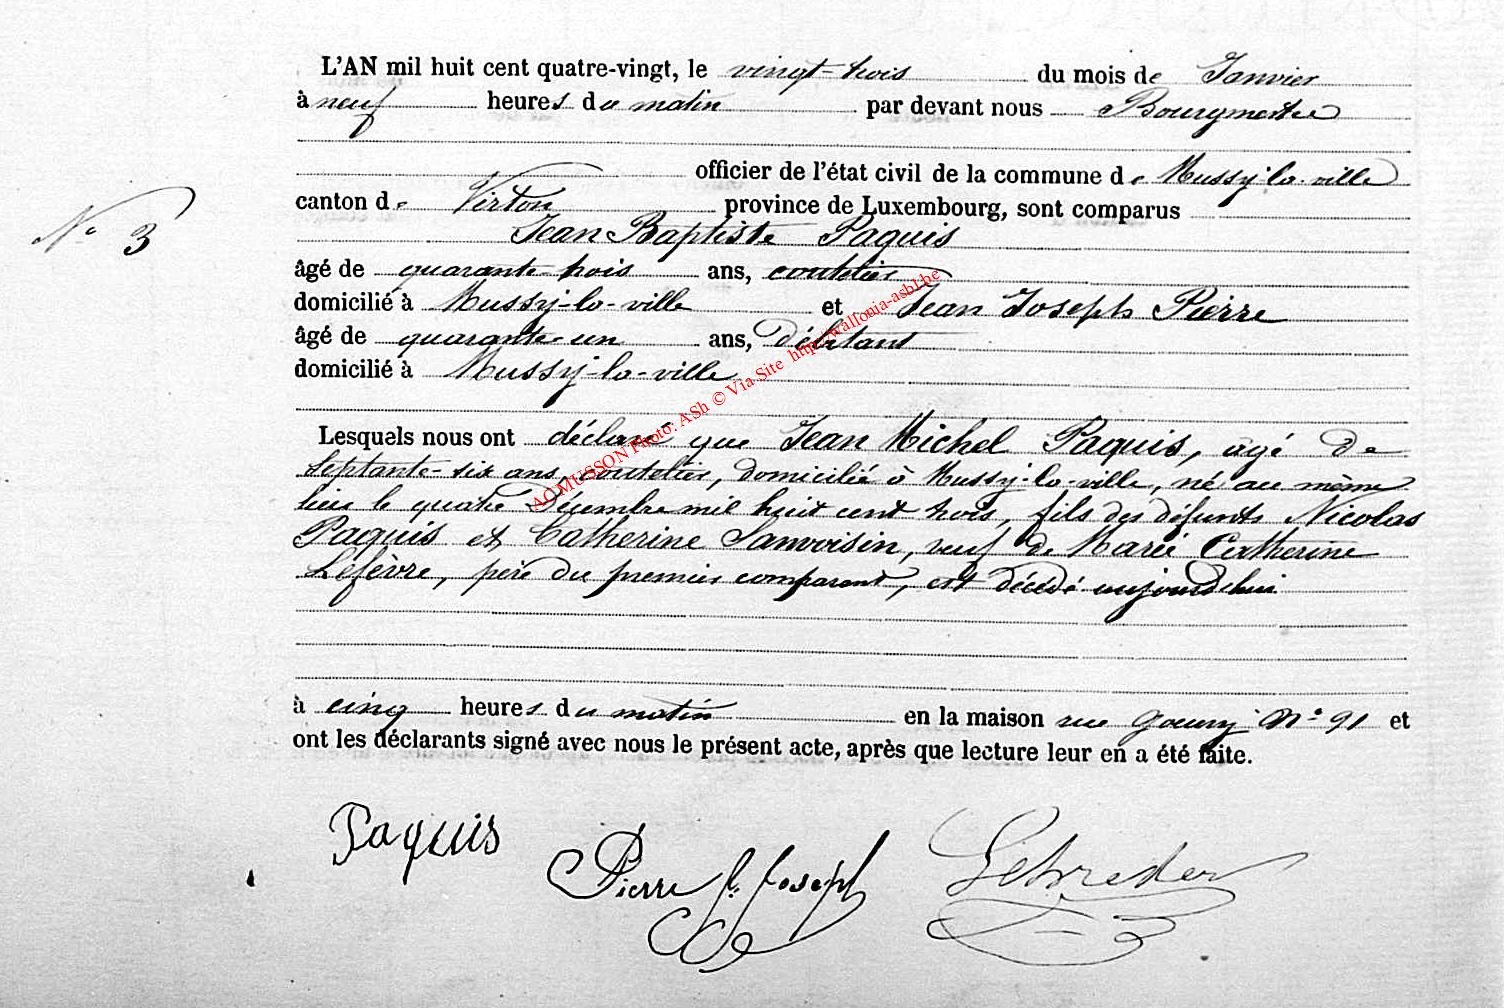 L'AN mil huit cent quatre-vingt, le vingt-trois du mois de Janvier
à neuf heures du matin par devant nous Bourgmestre
officier de l'état civil de la commune de Mussy-la-ville
canton de Virton province de Luxembourg, sont comparus
N° 3
Jean Baptiste Paquis
âgé de quarante-trois ans, coutelier
domicilié à Mussy-la-ville et Jean Joseph Pierre
âgé de quarante-un ans, Débitant
domicilié à Mussy-la-ville
AC MUSSON Photo: ASh © Via Site http://wallonia-asbl.be
Lesquels nous ont déclaré que Jean Michel Paquis, âgé de
Septante-six ans, coutelier, domicilié à Mussy-la-ville, né au même
lieu le quatre Décembre mil huit cent trois, fils des défunts Nicolas
Paquis et Catherine Sanvoisin, veuf de Marie Catherine
Lefèvre, père du premier comparant, est décédé aujourd'hui
à cinq heures du matin en la maison rue N° 91 et
ont les déclarants signé avec nous le présent acte, après que lecture leur en a été faite.
Paquis
Pierre J. Joseph